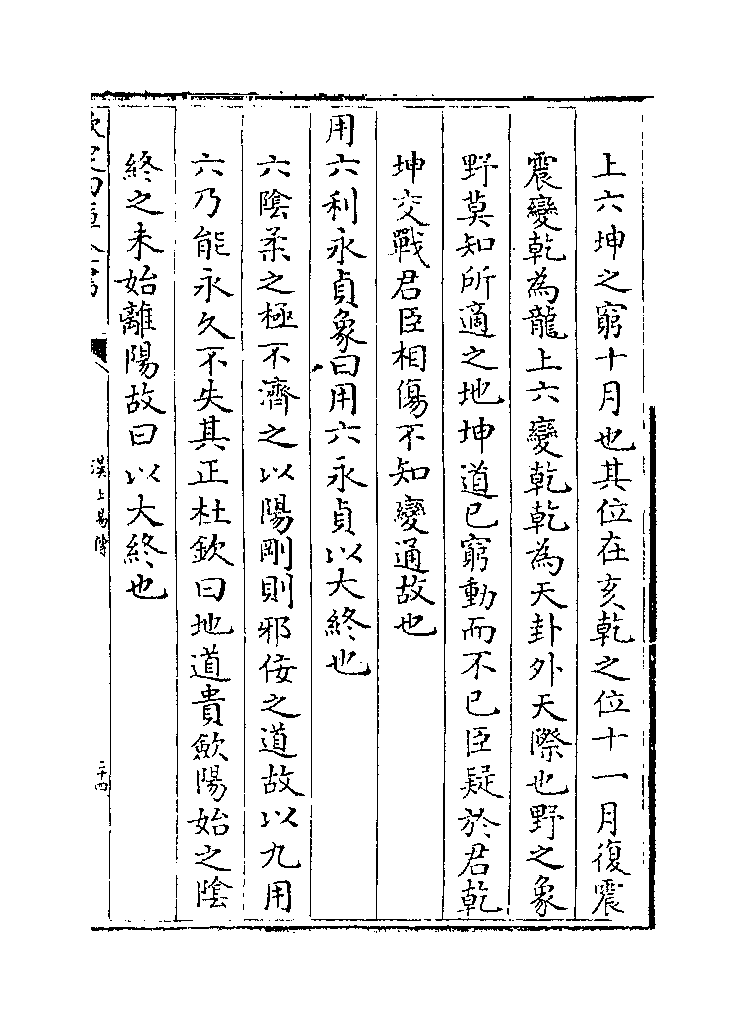 上六坤之窮十月也其位在亥乾之位十一月復震
震變乾為龍上六變乾乾為天卦外天際也野之象
野莫知所適之地坤道已窮動而不已臣疑於君乾
坤交戰君臣相傷不知變通故也
用六利永貞象曰用六永貞以大終也
六陰柔之極不濟之以陽剛則邪佞之道故以九用
六乃能永久不失其正杜欽曰地道貴歛陽始之陰
終之未始離陽故曰以大終也
欽定四庫全書
漢上易傳
二十四